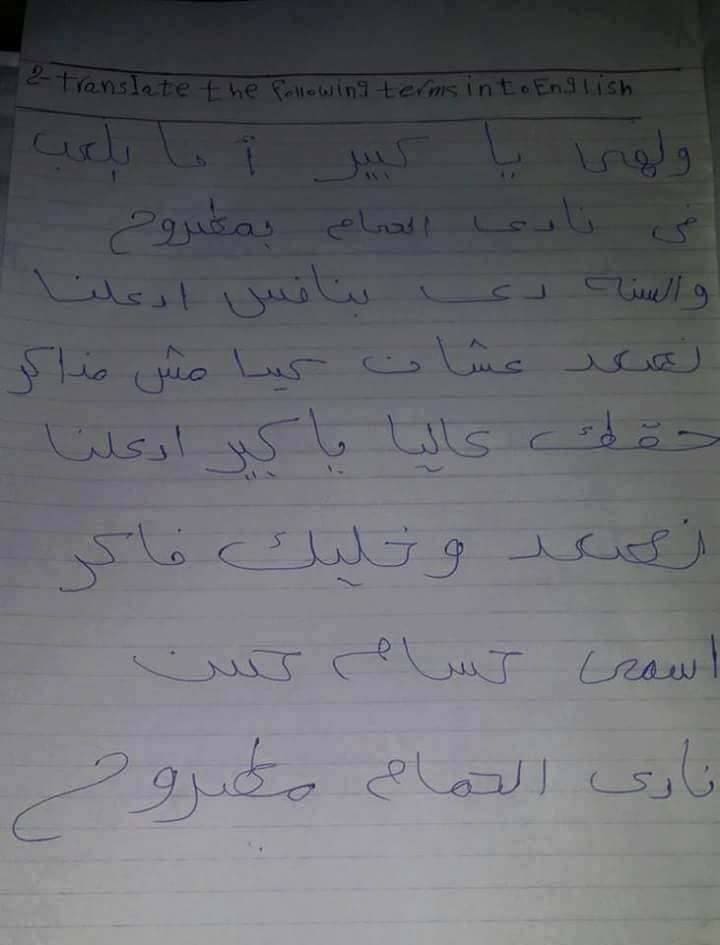 2- translate the following terms into English
ولهى يا كبير أنا بلعب
فى نادى الحمام بمطروح
والسنه دى بنافس ادعلنا
نصعد عشان كدا مش مذاكر
حقك عاليا يا كبير ادعلنا
نصعد وخليك فاكر
اسمى حسام حسن
نادى الحمام مطروح